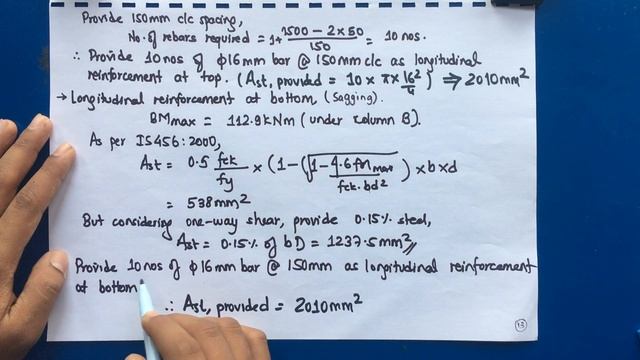 Provide 150mm c/c spacing,
No. of rebars required = 1+ (1500 - 2×50)/150 = 10 nos.
∴ Provide 10 nos of ϕ16mm bar @ 150mm c/c as longitudinal
reinforcement at top. (Ast, provided = 10 × π × 16²/4) ⇒ 2010mm²
→ Longitudinal reinforcement at bottom (Sagging).
BMmax = 112.9kNm (under column B).
As per IS456:2000,
Ast = 0.5 fck/fy × (1-(√(1-4.6Mmax/fck.bd²)) × b×d
= 538mm²
But considering one-way shear, provide 0.15% steel,
Ast = 0.15% of bD = 1237.5mm²
Provide 10nos of ϕ16mm bar @ 150mm as longitudinal reinforcement
at bottom
∴ Ast, provided = 2010mm²
13